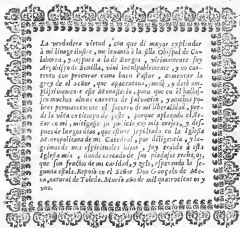 La verdadera virtud, con que di mayor esplendor
à mi linage ilustre, me levantò à la silla Obispal de Ca-
lahorra, y despues à la de Burgos, y ultimamente fuy
Arçobispo de Sevilla, viví inculpablemente, y no con-
tento con procurar como buen Pastor, aumentar la
grey de el señor, que apacentava, snudè, y dotè com-
plidissimamente este Monasterio, para que en el hallas-
sen muchas almas carrera de salvacion, y muchos po-
bres permanecientemente el favor de mi liberalidad,
de la vida en tiempo de peste, porque aplacado el Se-
ñor mitigasse su ira con mis ovejas, y des-
pues de largos dias, que estuve sepultado en la Iglesia
Metropolitana de mi Catedral, por diligencia, y la-
grimas de mis espirituales hijos, fuy traìdo à esta
Iglesia mia, donde cercado de sus piadosas probas,
que son frutos de mi caridad, y zelo, esperando la se-
gunda estola. Reposò en el Señor Don Gonçalo de Me-
na, natural de Toledo. Muriò año de mil quatrocientos y
uno.